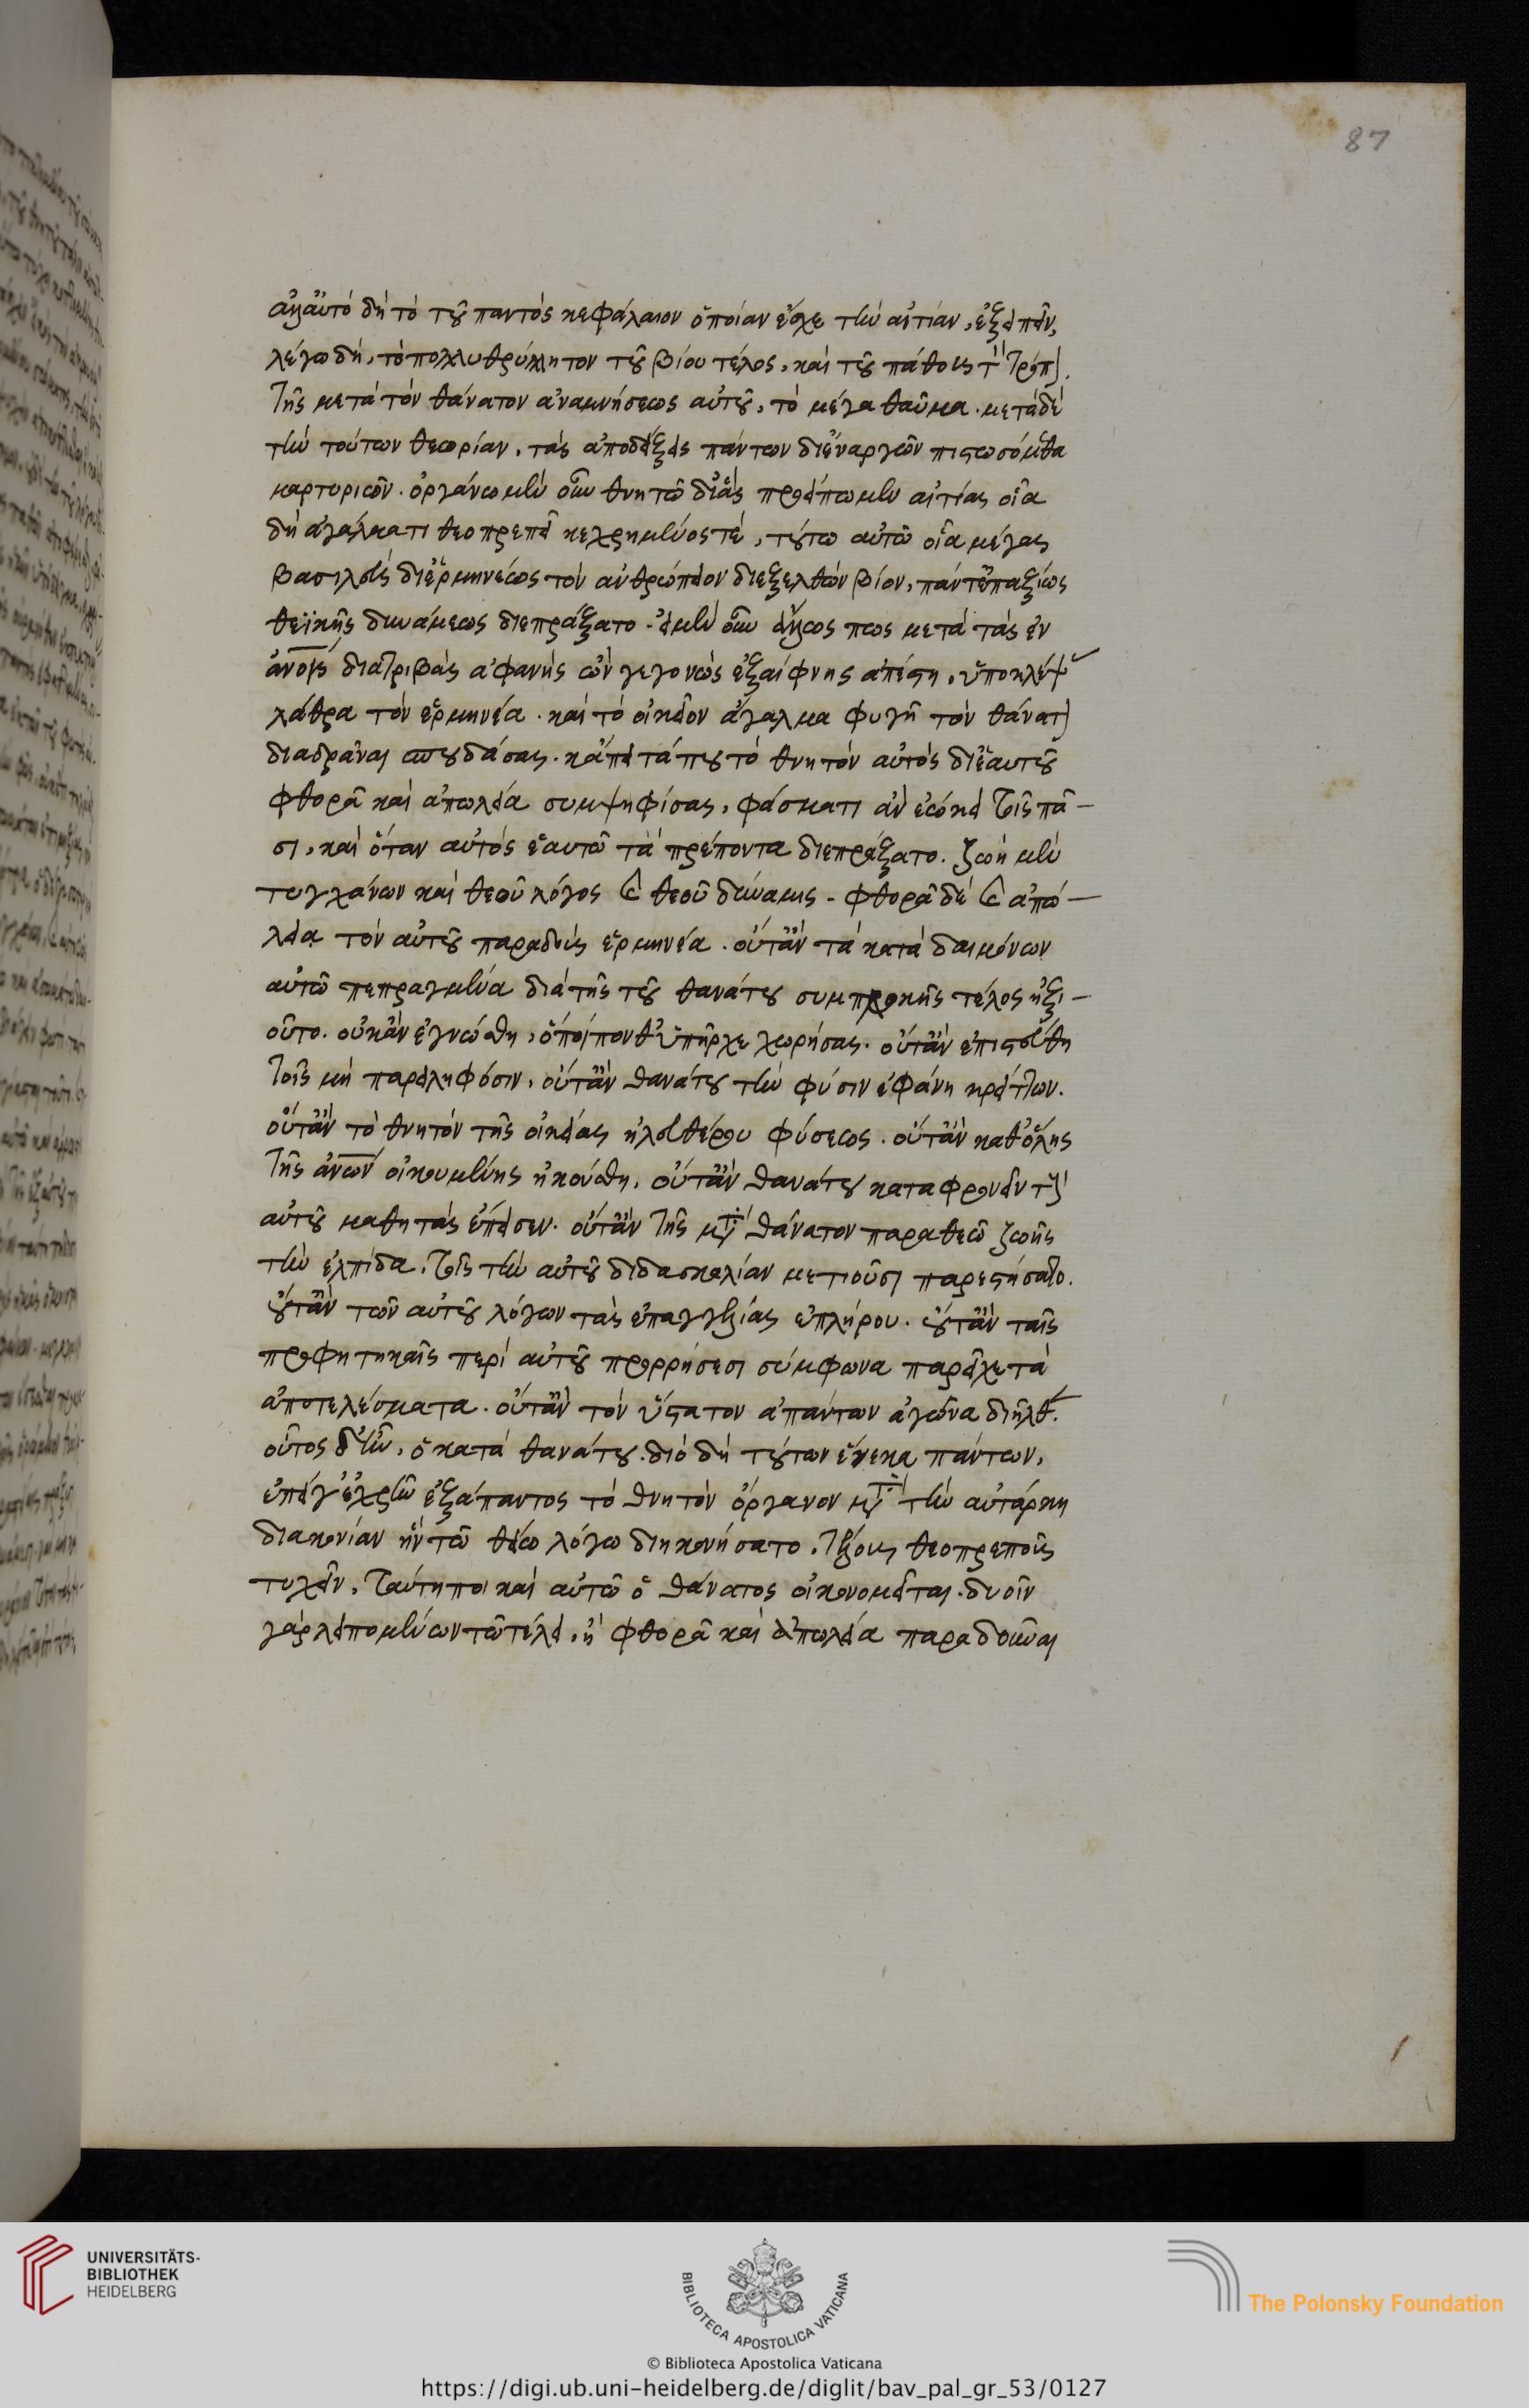 87
ἀλλ' αὐτὸ δὴ τὸ τοῦ παντὸς κεφάλαιον ὁποίαν ἔσχε τὴν αἰτίαν, ἐξειπεῖν,
λέγω δὴ, τὸ πολλυθρύλλητον τοῦ βίου τέλος, καὶ τοῦ πάθους τὸν τρόπον.
τῆς μετὰ τὸν θάνατον ἀναμνήσεως αὐτοῦ, τὸ μέγα θαῦμα. μετὰ δὲ
τὴν τούτων θεωρίαν, τὰς ἀποδείξεις πάντων δι' ἐναργῶν πιστωσόμεθα
μαρτυριῶν. ὀργάνω μὲν οὖν θνητῶ δι' ἃς προείπωμεν αἰτίας οἷα
δὴ ἀγάλματι θεοπρεπεῖ κεχρημένος τὲ, τούτω αὐτῶ οἷα μέγας
βασιλεὺς δι' ἑρμηνέως τὸν ἀνθρώπειον διεξελθὼν βίον, πάντ' ἐπαξίως
θεϊκῆς δυνάμεως διεπράξατο. εἰ μὲν οὖν ἄλλως πως μετὰ τὰς ἐν
ἀνοις διατριβὰς ἀφανὴς ὢν γεγονὼς ἐξαίφνης ἀπέστη, ὑποκλέψας
λάθρα τὸν ἑρμηνέα. καὶ τὸ οἰκεῖον ἄγαλμα φυγῆ τὸν θάνατον
διαδρᾶναι σπουδάσας. κἄπειτά που τὸ θνητὸν αὐτὸς δι' ἑαυτοῦ
φθορᾶ καὶ ἀπωλεία συμψηφίσας, φάσματι ἂν ἐώκει τοῖς πᾶ-
σι, καὶ ὅταν αὐτὸς ἑαυτῶ τὰ πρέποντα διεπράξατο. ζωὴ μὲν
τυγχάνων καὶ θεοῦ λόγος καὶ θεοῦ δύναμις. φθορᾶ δὲ καὶ ἀπω-
λεία τὸν αὐτοῦ παραδοὺς ἑρμηνέα. οὔτ' ἂν τὰ κατὰ δαιμόνων
αὐτῶ πεπραγμένα διὰ τῆς τοῦ θανάτου συμπλοκῆς τέλος ἠξι-
οῦτο. οὐκ ἂν ἐγνώσθη, ὅποί ποτ' ὑπῆρχε χωρήσας. οὔτ' ἂν ἐπιστεύθη
τοῖς μὴ παρειληφόσιν, οὔτ' ἂν θανάτου τὴν φύσιν ἐφάνη κρείττων.
οὔτ' ἂν τὸ θνητὸν τῆς οἰκείας ἠλευθέρου φύσεως. οὔτ' ἂν καθ' ὅλης
τῆς ἀνων οἰκουμένης ἠκούσθη, οὔτ' ἂν θανάτου καταφρονεῖν τοὺς
αὐτοῦ μαθητὰς ἔπεισεν. οὔτ' ἂν τῆς μετὰ τὸν θάνατον παρὰ θεῶ ζωῆς
τὴν ἐλπίδα, τοῖς τὴν αὐτοῦ διδασκαλίαν μετιοῦσι παρεστήσατο.
οὔτ' ἂν τῶν αὐτοῦ λόγων τὰς ἐπαγγελίας ἐπλήρου. οὔτ' ἂν ταῖς
προφητικαῖς περὶ αὐτοῦ προρρήσεσι σύμφωνα παρεῖχε τὰ
ἀποτελέσματα. οὔτ' ἂν τὸν ὕστατον ἁπάντων ἀγῶνα διῆλθεν.
οὗτος δ' ἦν, ὁ κατὰ θανάτου. διὸ δὴ τούτων ἕνεκα πάντων,
ἐπεί γ' ἐχρῆν ἐξάπαντος τὸ θνητὸν ὄργανον μετὰ τὴν αὐτάρκη
διακονίαν ἣν τῶ θείω λόγω διηκονήσατο, τέλους θεοπρεποῦς
τυχεῖν, ταύτη ποι καὶ αὐτῶ ὁ θάνατος οἰκονομεῖται. δυοῖν
γὰρ λειπομένων τῶ τέλει, ἢ φθορᾶ καὶ ἀπωλεία παραδοῦναι
UNIVERSITÄTS-
BIBLIOTHEK
HEIDELBERG
BIBLIOTECA APOSTOLICA VATICANA
The Polonsky Foundation
© Biblioteca Apostolica Vaticana
https://digi.ub.uni-heidelberg.de/diglit/bav_pal_gr_53/0127